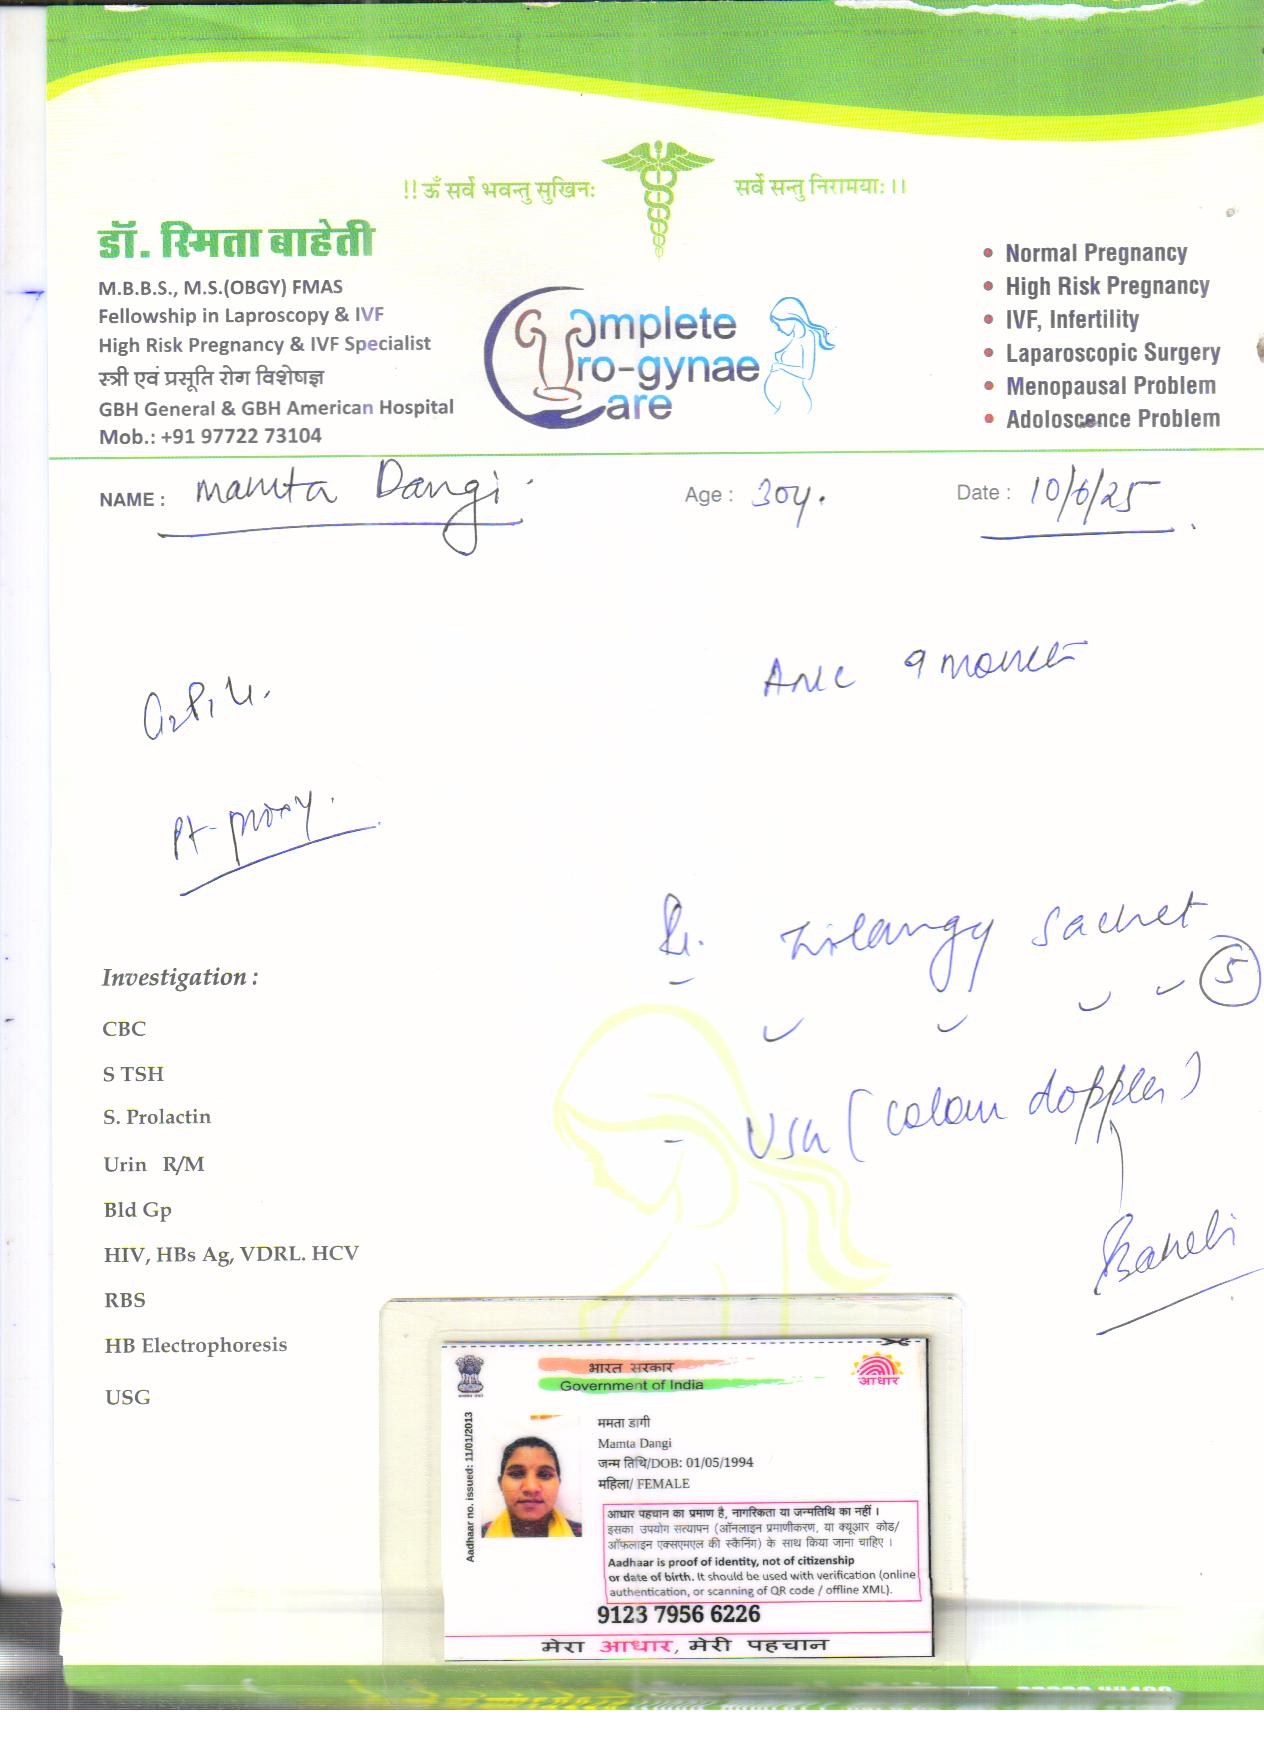 !! ॐ सर्वे भवन्तु सुखिनः
सर्वे सन्तु निरामयाः ।।
डॉ. स्मिता बाहेती
M.B.B.S., M.S.(OBGY) FMAS
Fellowship in Laproscopy & IVF
High Risk Pregnancy & IVF Specialist
स्त्री एवं प्रसूति रोग विशेषज्ञ
GBH General & GBH American Hospital
Mob.: +91 97722 73104
Complete
Uro-gynae
Care
• Normal Pregnancy
• High Risk Pregnancy
• IVF, Infertility
• Laparoscopic Surgery
• Menopausal Problem
• Adoloscence Problem
NAME : Mamta Dangi
Age : 30y.
Date : 10/6/25
9 month
Pt-
sachet
5
USG (colour doppler)
Baheti
Investigation :
CBC
S TSH
S. Prolactin
Urin R/M
Bld Gp
HIV, HBs Ag, VDRL. HCV
RBS
HB Electrophoresis
USG
भारत सरकार
Government of India
आधार
Aadhaar no. issued: 11/01/2013
ममता डांगी
Mamta Dangi
जन्म तिथि/DOB: 01/05/1994
महिला/ FEMALE
आधार पहचान का प्रमाण है, नागरिकता या जन्मतिथि का नहीं ।
इसका उपयोग सत्यापन (ऑनलाइन प्रमाणीकरण, या क्यूआर कोड/
ऑफलाइन एक्सएमएल की स्कैनिंग) के साथ किया जाना चाहिए ।
Aadhaar is proof of identity, not of citizenship
or date of birth. It should be used with verification (online
authentication, or scanning of QR code / offline XML).
9123 7956 6226
मेरा आधार, मेरी पहचान